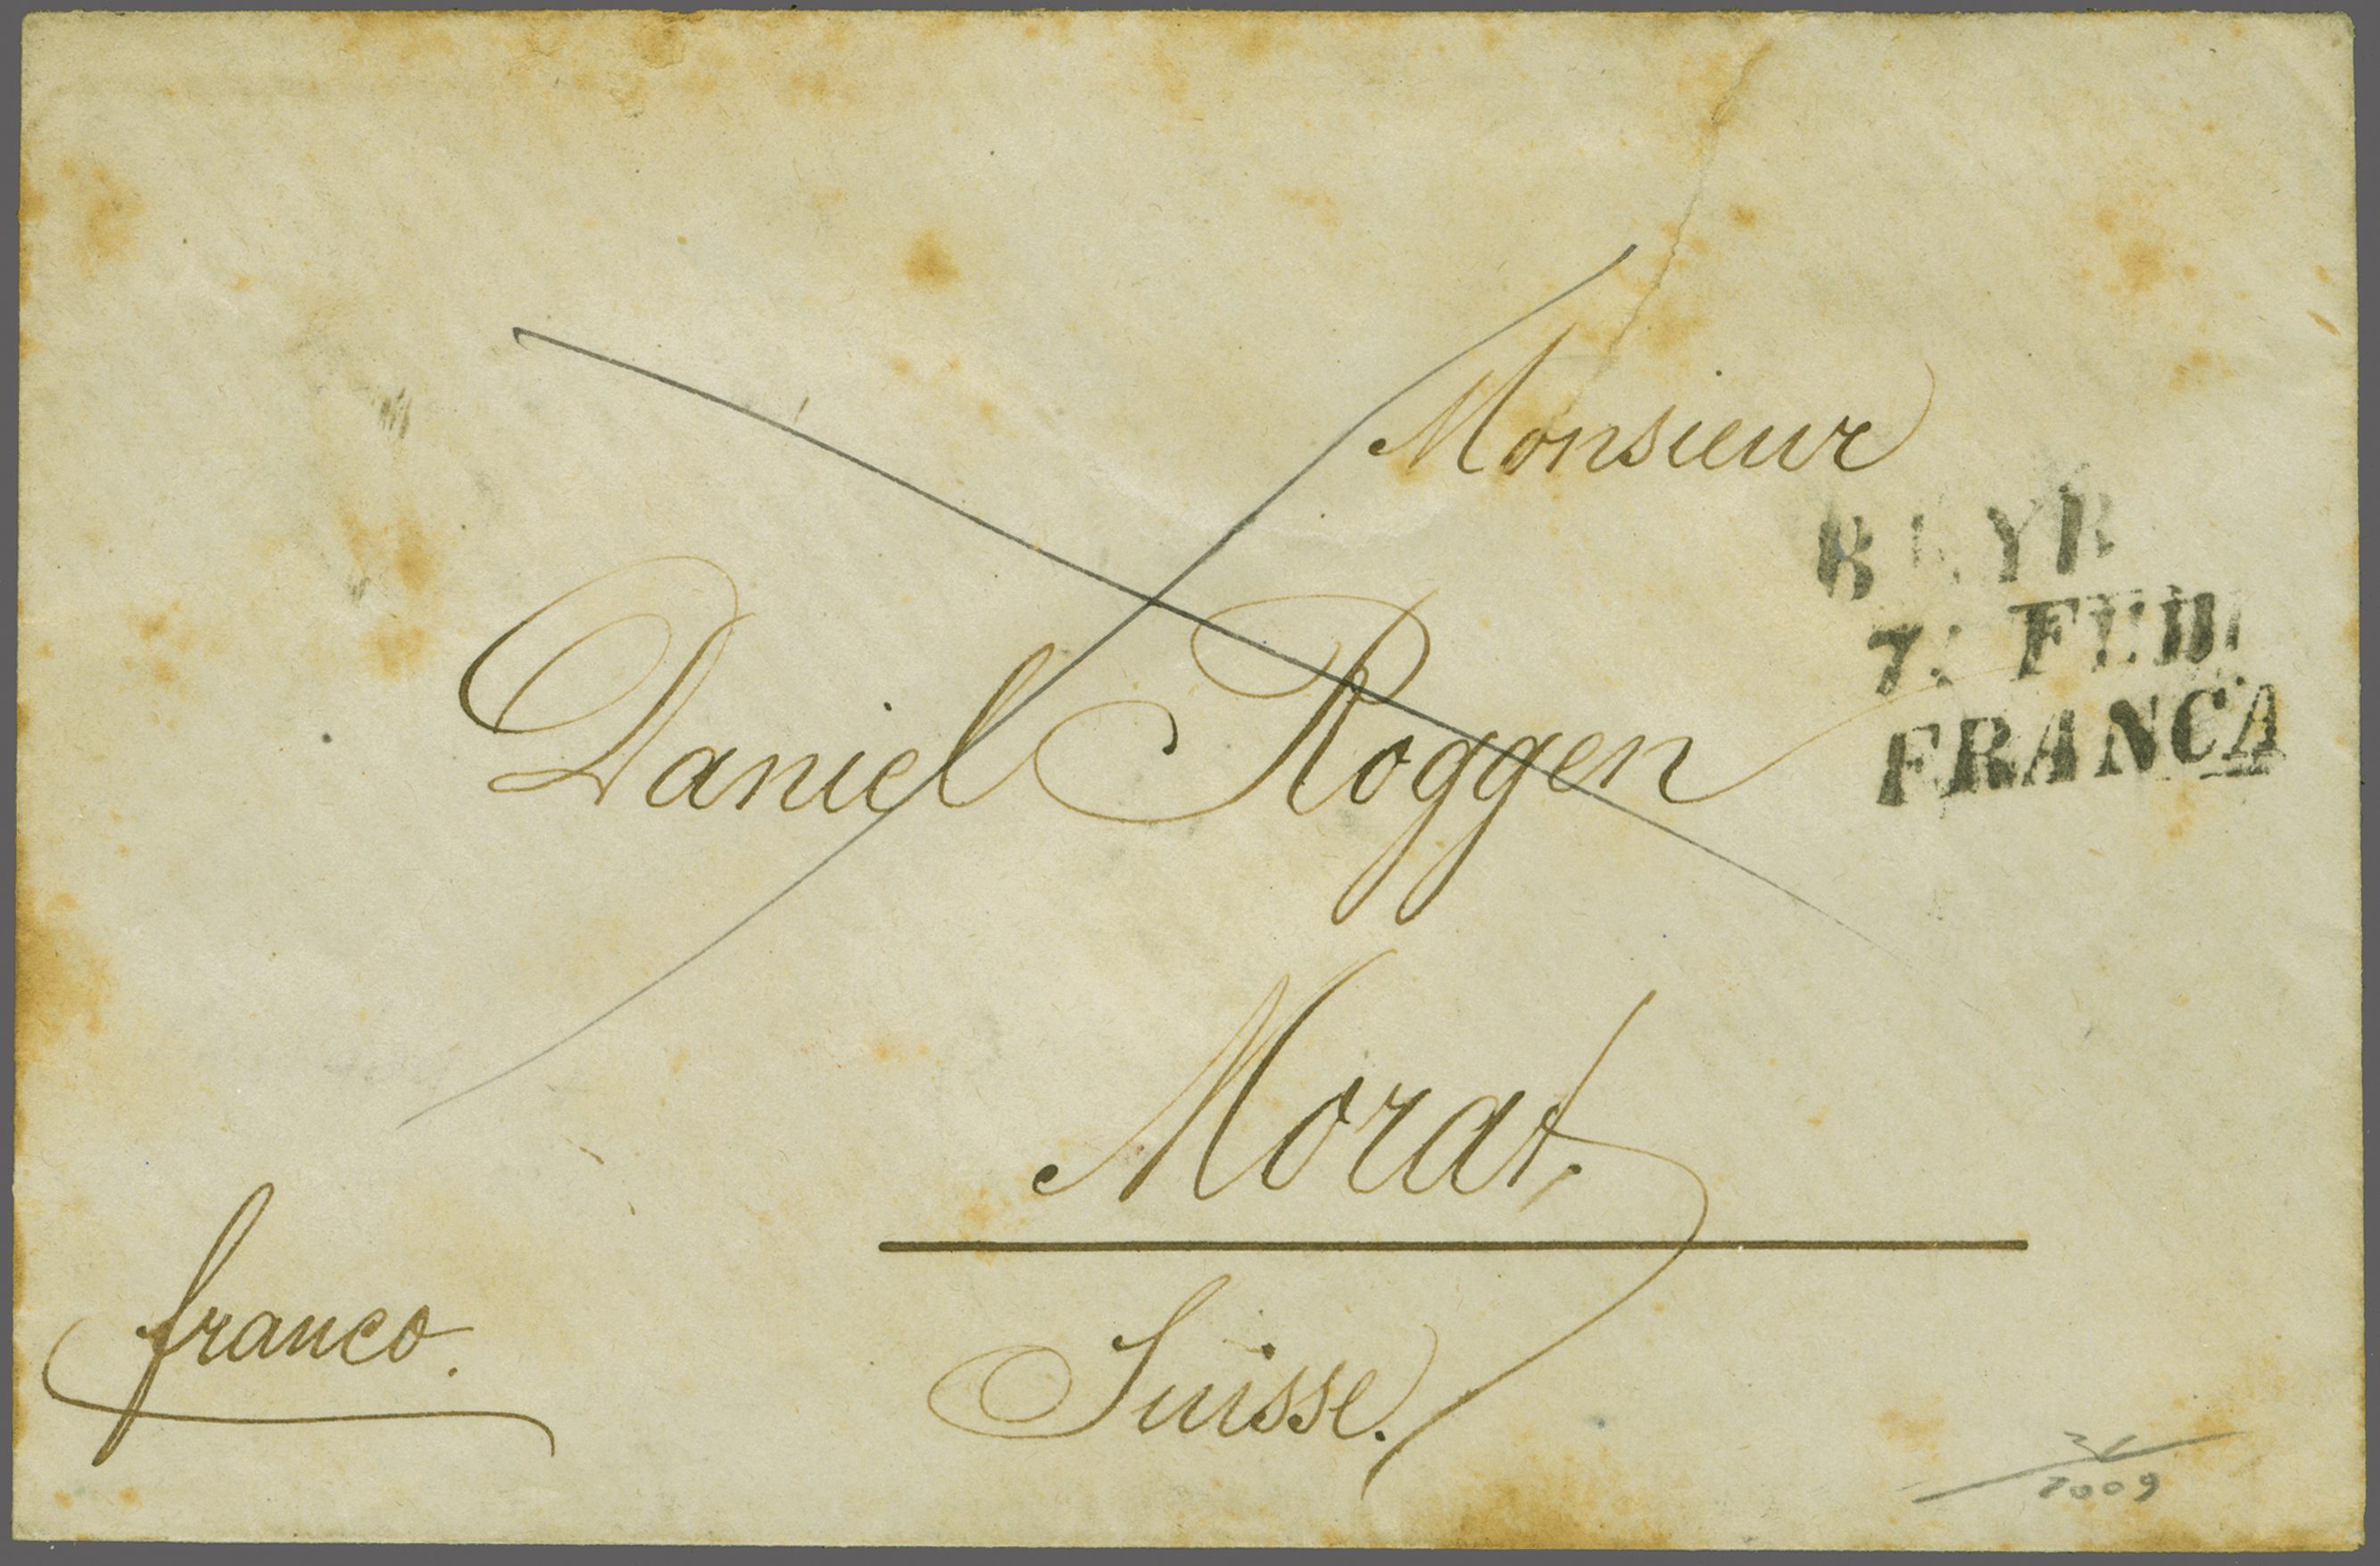 Monsieur
Daniel Roggen
Morat.
Suisse.
franco.
BEYR
7. FEB.
FRANCA
2009